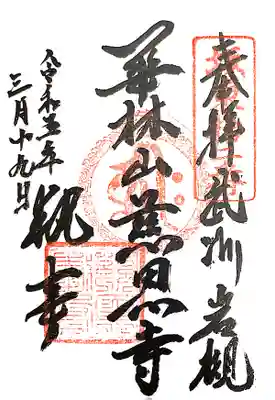 奉拝武州岩槻
華林山慈恩寺
執事
令和五年
三月十九日